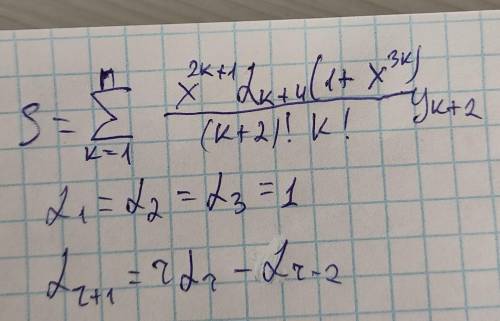 S = \sum_{k=1}^{n} \frac{x^{2k+1} α_{k+4} (1 + x^{3k})}{(k+2)! k!} y_{k+2}
α_1 = α_2 = α_3 = 1
α_{r+1} = r α_r - α_{r-2}